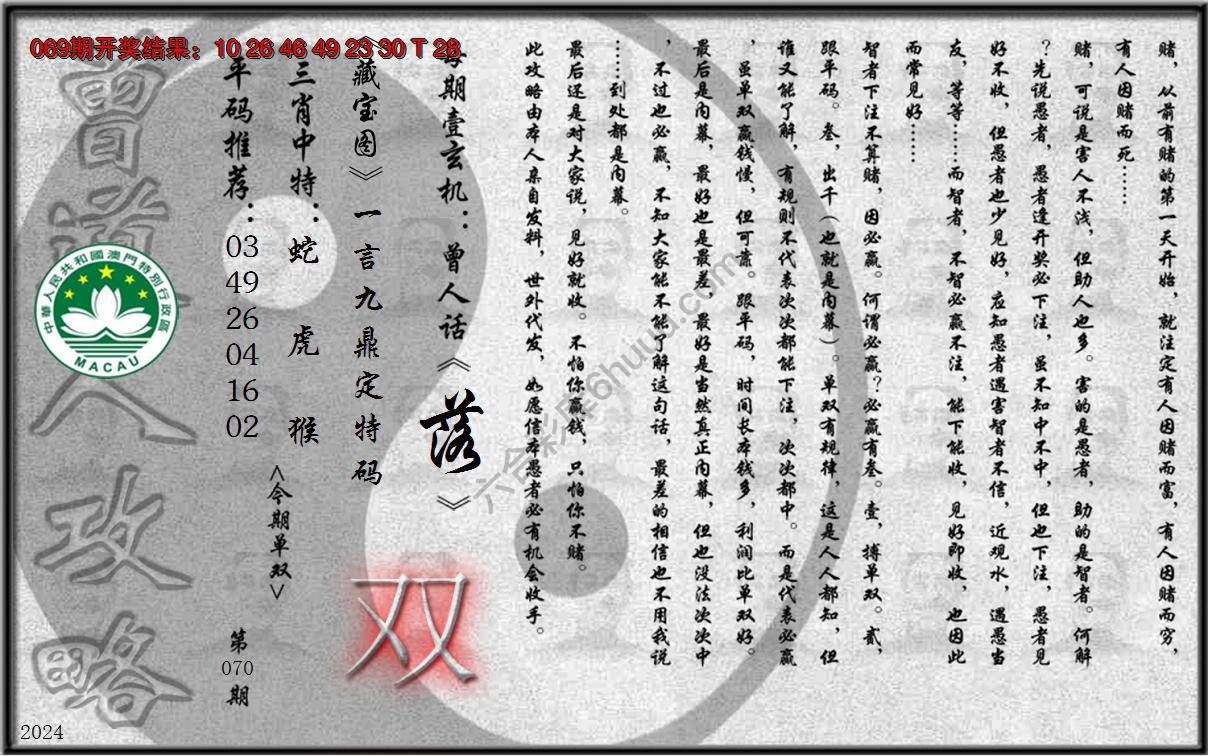 069期开奖结果：10 26 46 49 23 30 T 28
赌，从前有赌的第一天开始，就注定有人因赌而富，有人因赌而穷，
有人因赌而死……
赌，可说是害人不浅，但助人也多。害的是愚者，助的是智者。何解
？先说愚者，愚者逢开奖必下注，虽不知中不中，但也下注，愚者见
好不收，但愚者也少见好，应知愚者遇害智者不信，近观水，遇愚当
友，等等……而智者，不智必赢不注，能下能收，见好即收，也因此
而常见好……
智者下注不算赌，因必赢。何谓必赢？必赢有叁。壹，搏单双。贰，
跟平码。叁，出千（也就是内幕）。单双有规律，这是人人都知，但
谁又能了解，有规则不代表次次都能下注，次次都中。而是代表必赢
，虽单双赢钱慢，但可靠。跟平码，时间长本钱多，利润比单双好。
最后是内幕，最好也是最差，最好是当然真正内幕，但也没法次次中
，不过也必赢，不知大家能不能了解这句话，最差的相信也不用我说
……到处都是内幕。
最后还是对大家说，见好就收。不怕你赢钱，只怕你不赌。
此攻略由本人亲自发料，世外代发，如愿信本愚者必有机会收手。
每期壹玄机：曾人话《落》
《藏宝图》一言九鼎定特码
双
三肖中特：蛇 虎 猴
<今期单双>
平码推荐：03 49 26 04 16 02
第
070
期
曾道人攻略
中華人民共和國澳門特別行政區
MACAU
2024